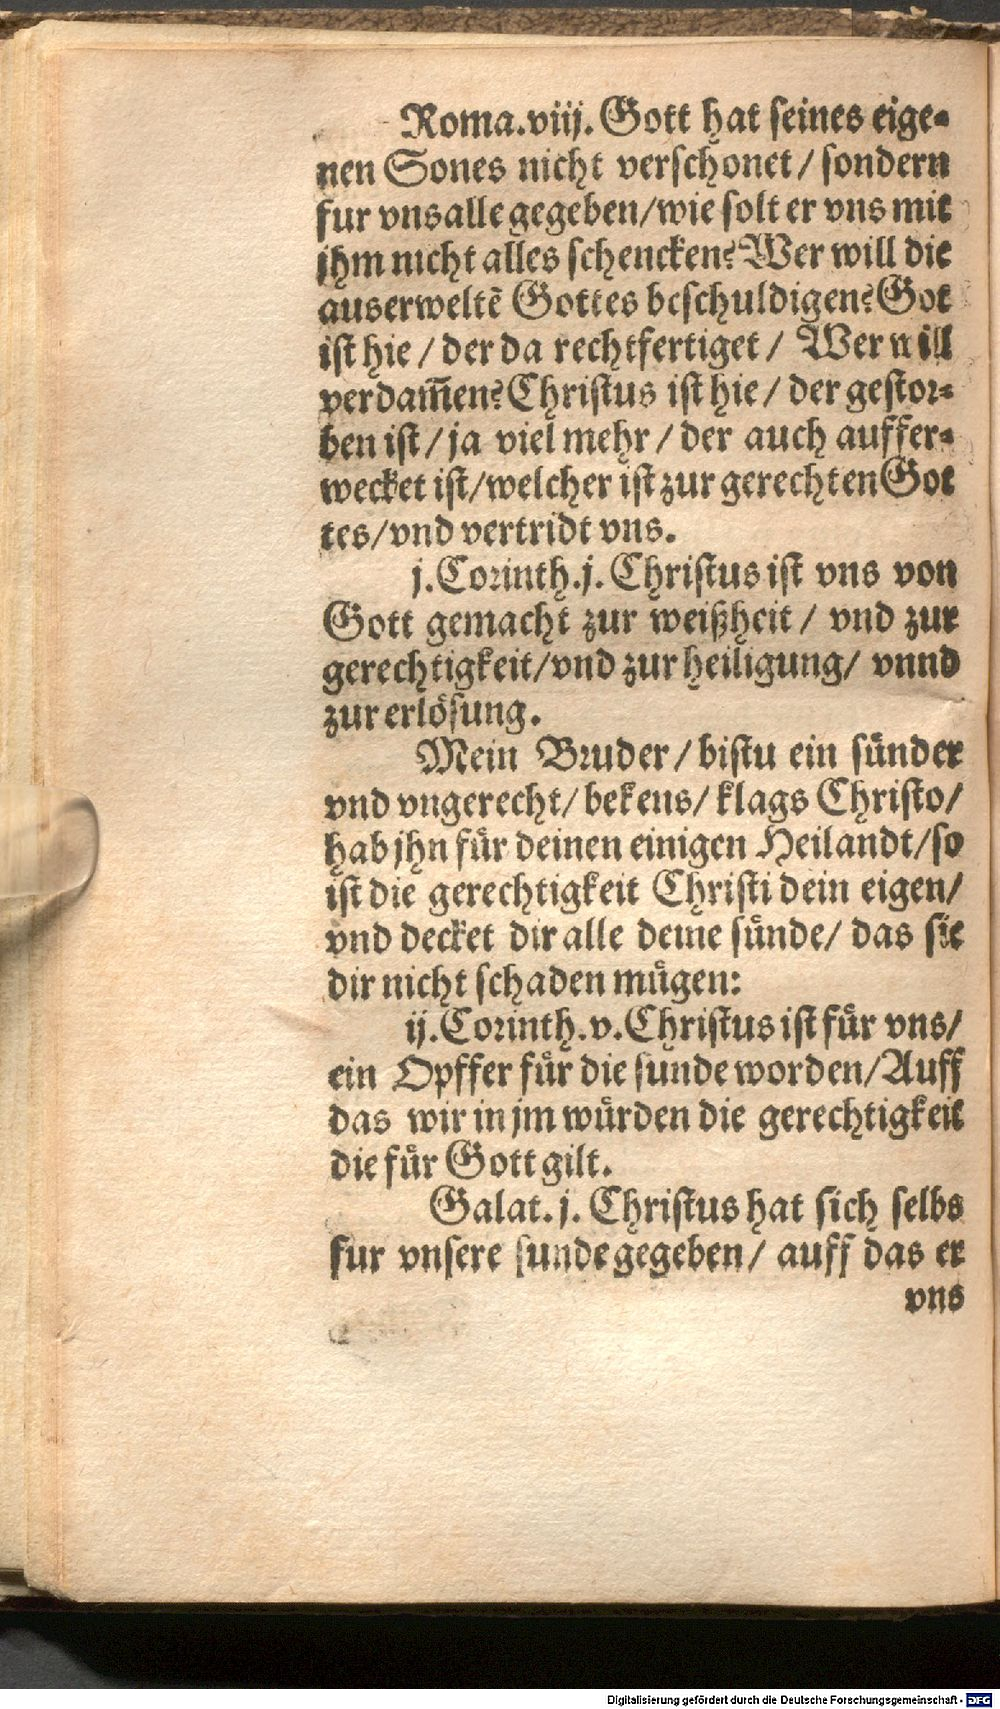 Roma.viij. Gott hat seines eige-
nen Sones nicht verschonet / sondern
fur vns alle gegeben/wie solt er vns mit
jhm nicht alles schencken? Wer will die
auserweltē Gottes beschuldigen? Got
ist hie / der da rechtfertiget / Wer will
verdam̄en? Christus ist hie / der gestor-
ben ist / ja viel mehr / der auch auffer-
wecket ist/welcher ist zur gerechten Got
tes/vnd vertridt vns.
j.Corinth.j. Christus ist vns von
Gott gemacht zur weißheit / vnd zur
gerechtigkeit/vnd zur heiligung/ vnnd
zur erlösung.
Mein Bruder / bistu ein sünder
vnd vngerecht/ bekens/ klags Christo/
hab jhn für deinen einigen Heilandt/so
ist die gerechtigkeit Christi dein eigen/
vnd decket dir alle deine sünde/ das sie
dir nicht schaden mügen:
ij.Corinth.v.Christus ist für vns/
ein Opffer für die sunde worden/Auff
das wir in jm würden die gerechtigkeit
die für Gott gilt.
Galat.j. Christus hat sich selbs
fur vnsere sunde gegeben/ auff das er
vns
Digitalisierung gefördert durch die Deutsche Forschungsgemeinschaft - DFG